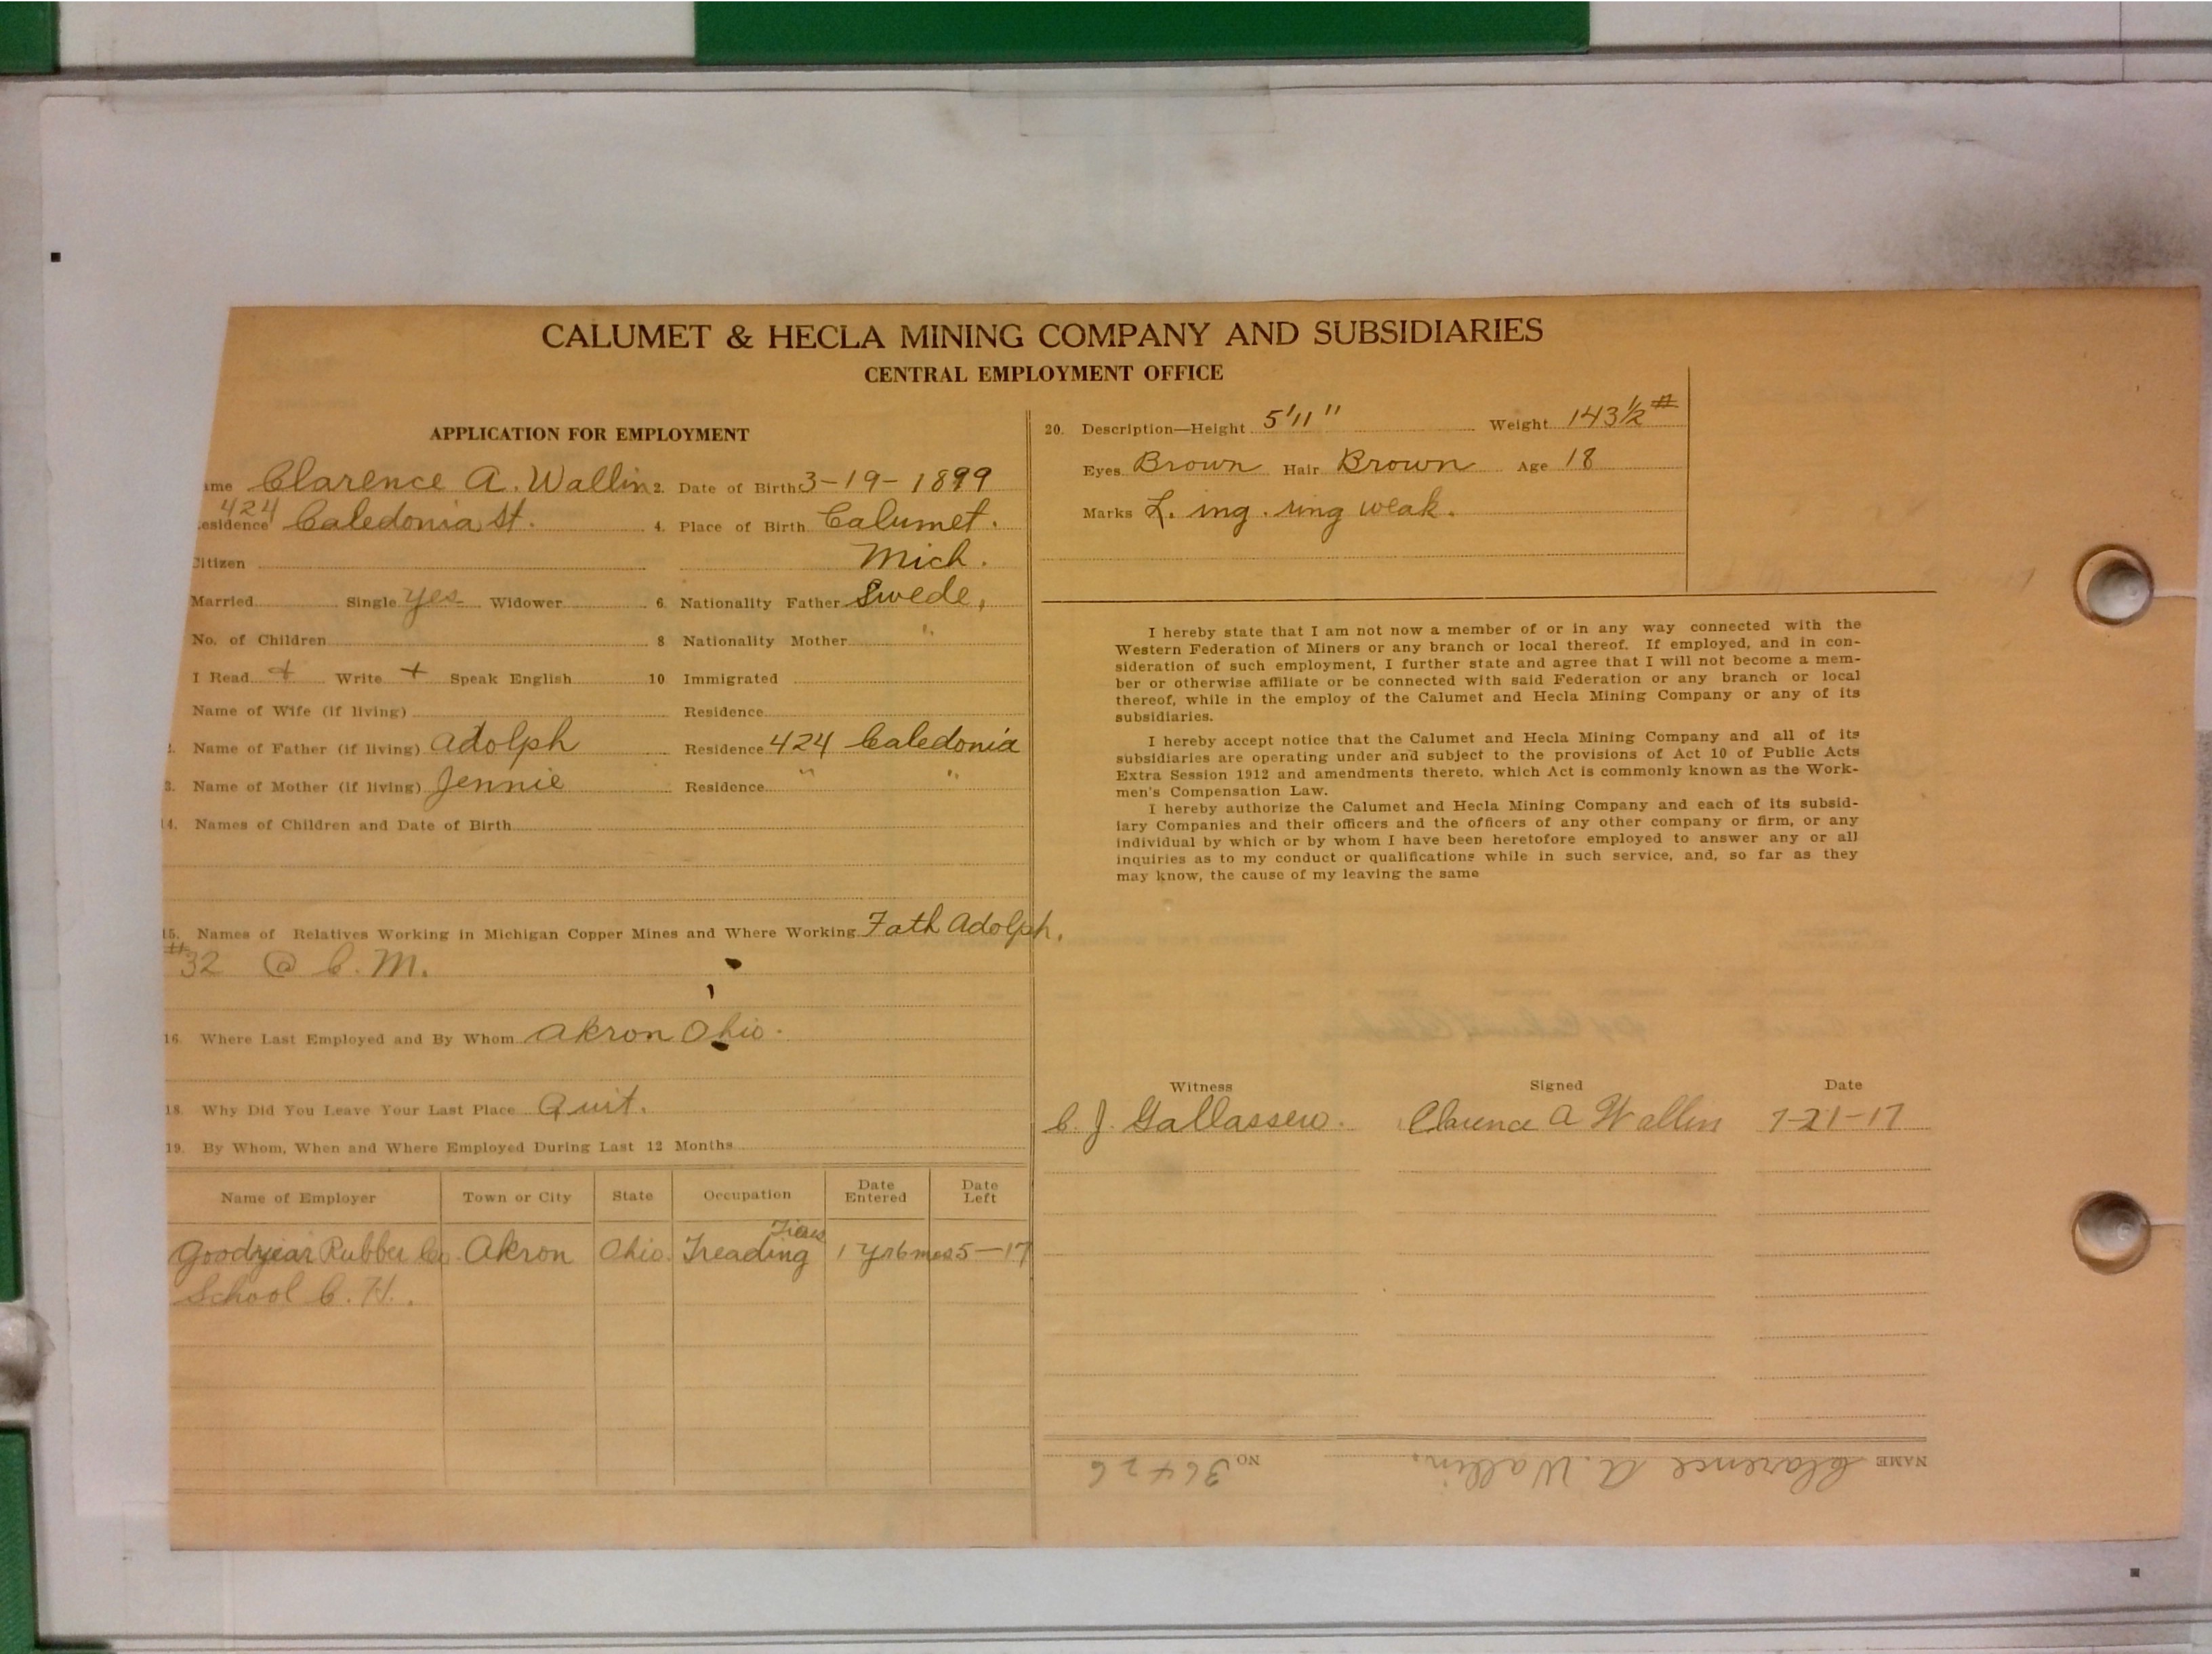 CALUMET & HECLA MINING COMPANY AND SUBSIDIARIES
CENTRAL EMPLOYMENT OFFICE
APPLICATION FOR EMPLOYMENT
ame Clarence A. Wallin 2. Date of Birth 3-19-1899
esidence 424 Caledonia St. 4. Place of Birth Calumet.
Citizen Mich.
Married Single yes Widower 6. Nationality Father Swede,
No. of Children 8 Nationality Mother "
I Read + Write + Speak English 10 Immigrated
Name of Wife (if living) Residence
2. Name of Father (if living) Adolph Residence 424 Caledonia
3. Name of Mother (if living) Jennie Residence " "
14. Names of Children and Date of Birth
15. Names of Relatives Working in Michigan Copper Mines and Where Working Fath Adolph,
#32 @ C. M.
16. Where Last Employed and By Whom Akron Ohio.
18. Why Did You Leave Your Last Place Quit.
19. By Whom, When and Where Employed During Last 12 Months
Name of Employer Town or City State Occupation Date Entered Date Left
Goodyear Rubber Co Akron Ohio. Treading 1 yr 6 mos 5-17
School C. H.
20. Description—Height 5'11" Weight 143½#
Eyes Brown Hair Brown Age 18
Marks L. ing. ring weak.
I hereby state that I am not now a member of or in any way connected with the
Western Federation of Miners or any branch or local thereof. If employed, and in con-
sideration of such employment, I further state and agree that I will not become a mem-
ber or otherwise affiliate or be connected with said Federation or any branch or local
thereof, while in the employ of the Calumet and Hecla Mining Company or any of its
subsidiaries.
I hereby accept notice that the Calumet and Hecla Mining Company and all of its
subsidiaries are operating under and subject to the provisions of Act 10 of Public Acts
Extra Session 1912 and amendments thereto, which Act is commonly known as the Work-
men's Compensation Law.
I hereby authorize the Calumet and Hecla Mining Company and each of its subsid-
iary Companies and their officers and the officers of any other company or firm, or any
individual by which or by whom I have been heretofore employed to answer any or all
inquiries as to my conduct or qualifications while in such service, and, so far as they
may know, the cause of my leaving the same
Witness Signed Date
C. J. Clarence A Wallin 7-21-17
NAME Clarence A. Wallin. NO 36426